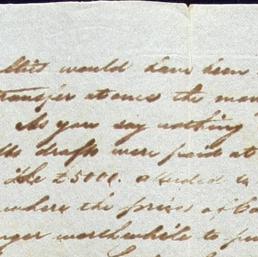 would have been
transfer at once the
As you say nothing
drafts were paid at
The £5000 alluded to
where the price of
worth while to